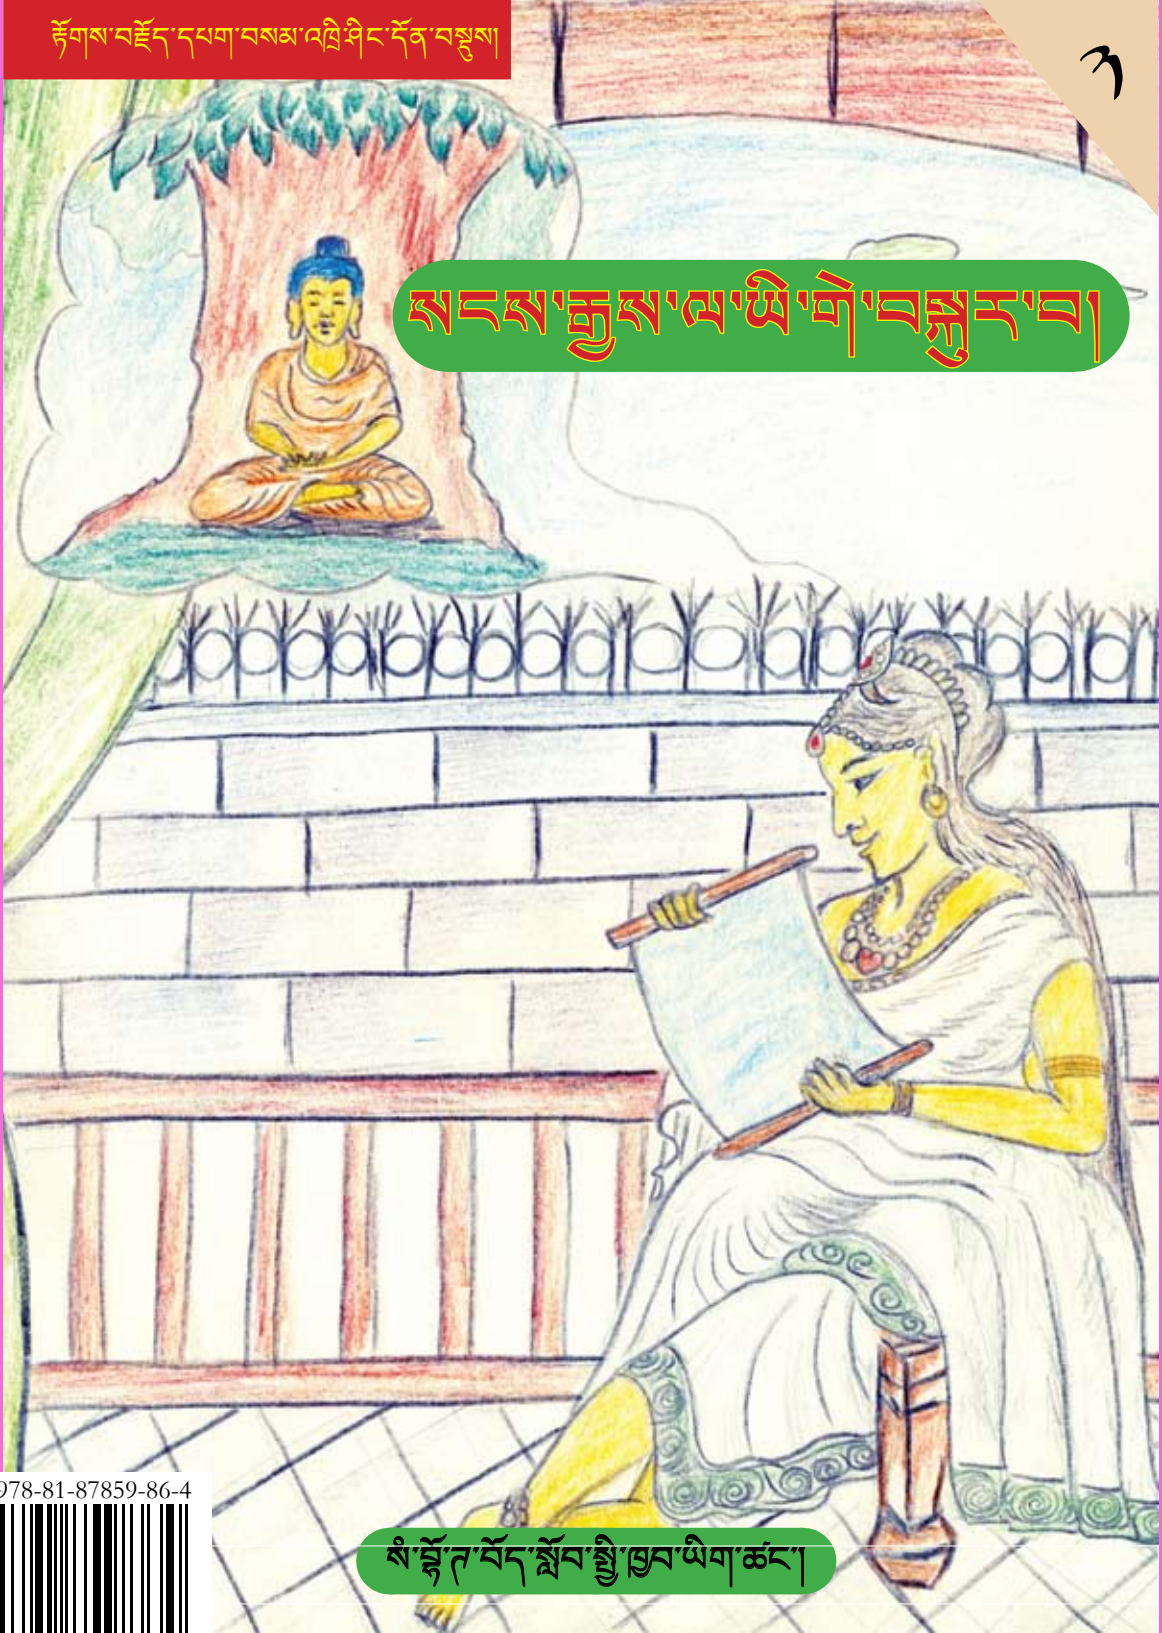 རྟོགས་བརྗོད་དཔག་བསམ་འཁྲི་ཤིང་དོན་བསྡུས།
༡
སངས་རྒྱས་ལ་ཡི་གེ་བསྐུར་བ།
978-81-87859-86-4
སཾ་བྷོ་ཊ་བོད་སློབ་སྤྱི་ཁྱབ་ཡིག་ཚང་།